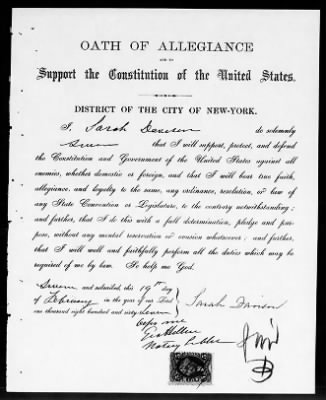 OATH OF ALLEGIANCE
AND TO
Support the Constitution of the United States.
DISTRICT OF THE CITY OF NEW-YORK.
I, Sarah do solemnly
that I will support, protect, and defend
the Constitution and Government of the United States against all
enemies, whether domestic or foreign, and that I will bear true faith,
allegiance, and loyalty to the same, any ordinance, resolution, or law of
any State Convention or Legislature, to the contrary notwithstanding;
and further, that I do this with a full determination, pledge and pur-
pose, without any mental reservation or evasion whatsoever; and further,
that I will well and faithfully perform all the duties which may be
required of me by law. So help me God.
Sworn and subscribed, this 19th day
of February in the year of our Lord
one thousand eight hundred and sixty-seven
Sarah
before me
Notary Public